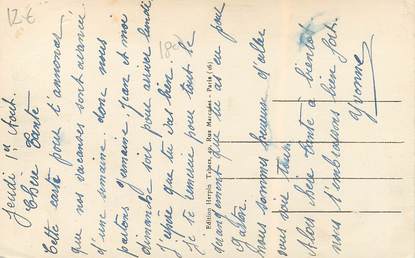 12 €
180
Jeudi 1er Août.
Chère Tante
Cette carte pour t'annoncer
que nos vacances sont avancé
d'une semaine. donc nous
partons Jean et moi
dimanche soir pour arriver lundi
J'espère que tu vas bien.
Je te remercie pour tout le
changement que tu as eu pour
nous sommes heureuse d'aller
vous voir tous.
Alors chère tante à bientôt
nous t'embrassons bien fort.
Yvonne
Edition Herpin Rue Paris